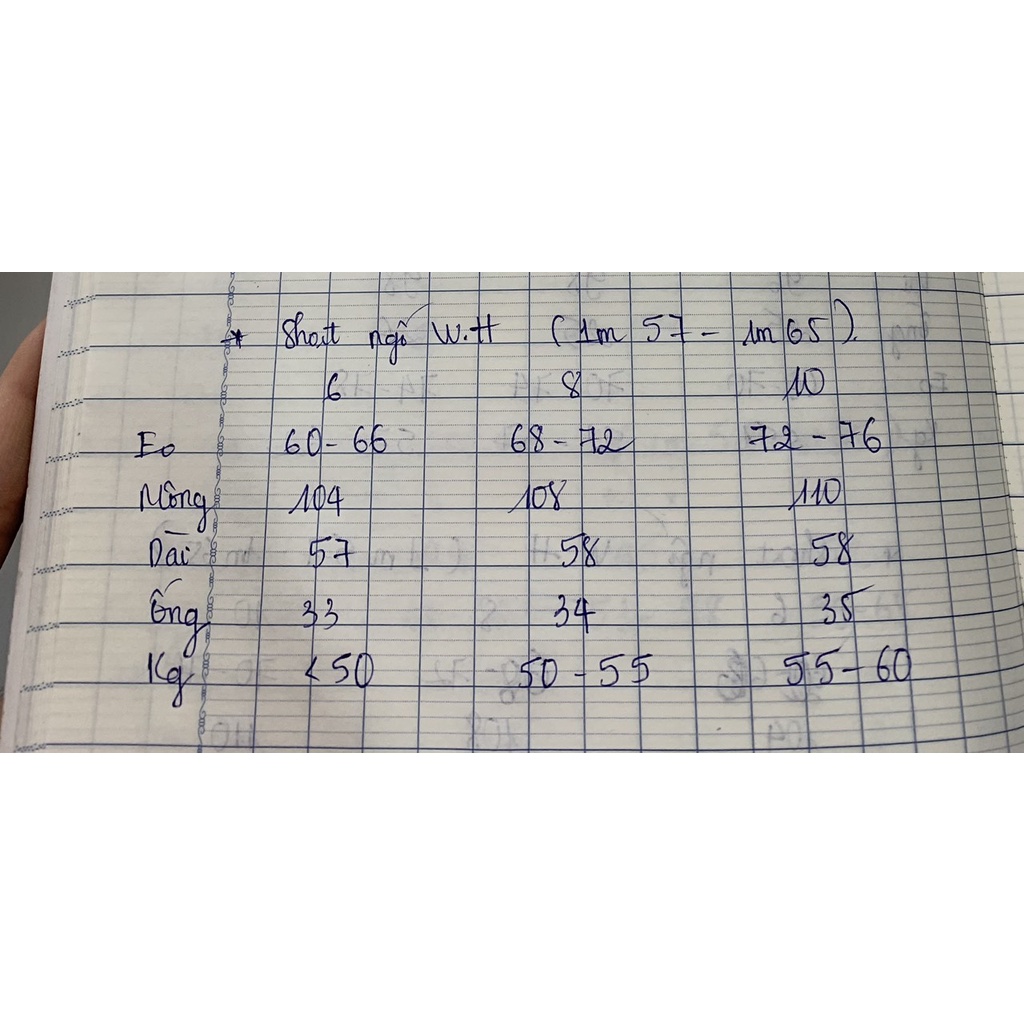 * Short ngố W.H (1m 57 - 1m 65).
6 8 10
Eo 60-66 68-72 72-76
Mông 104 108 110
Dài 57 58 58
Ống 33 34 35
Kg <50 50-55 55-60